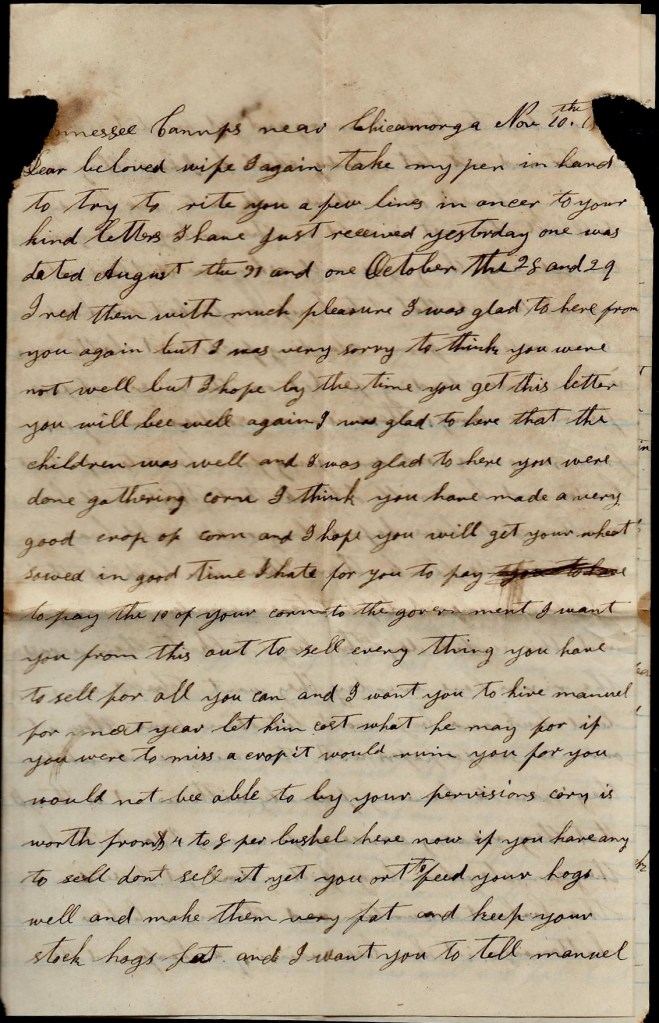 nnessee Camps near Chicamorga Nov 10th
Dear beloved wife I again take my pen in hand
to try to rite you a few lines in ancer to your
kind letters I have just received yesterday one was
dated August the 31 and one October the 28 and 29
I red them with much pleasure I was glad to here from
you again but I was very sorry to think you were
not well but I hope by the time you get this letter
you will bee well again I was glad to here that the
children was well and I was glad to here you were
done gathering corn I think you have made a very
good crop of corn and I hope you will get your wheat
sowed in good time I hate for you to pay
to pay the 10 of your corn to the govern ment I want
you from this out to sell every thing you have
to sell for all you can and I want you to hire manuel
for next year let him cost what he may for if
you were to miss a crop it would ruin you for you
would not bee able to by your pervisions corn is
worth from $ 4 to 8 per bushel here now if you have any
to sell dont sell it yet you ort to feed your hogs
well and make them very fat and keep your
stock hogs fat and I want you to tell manuel